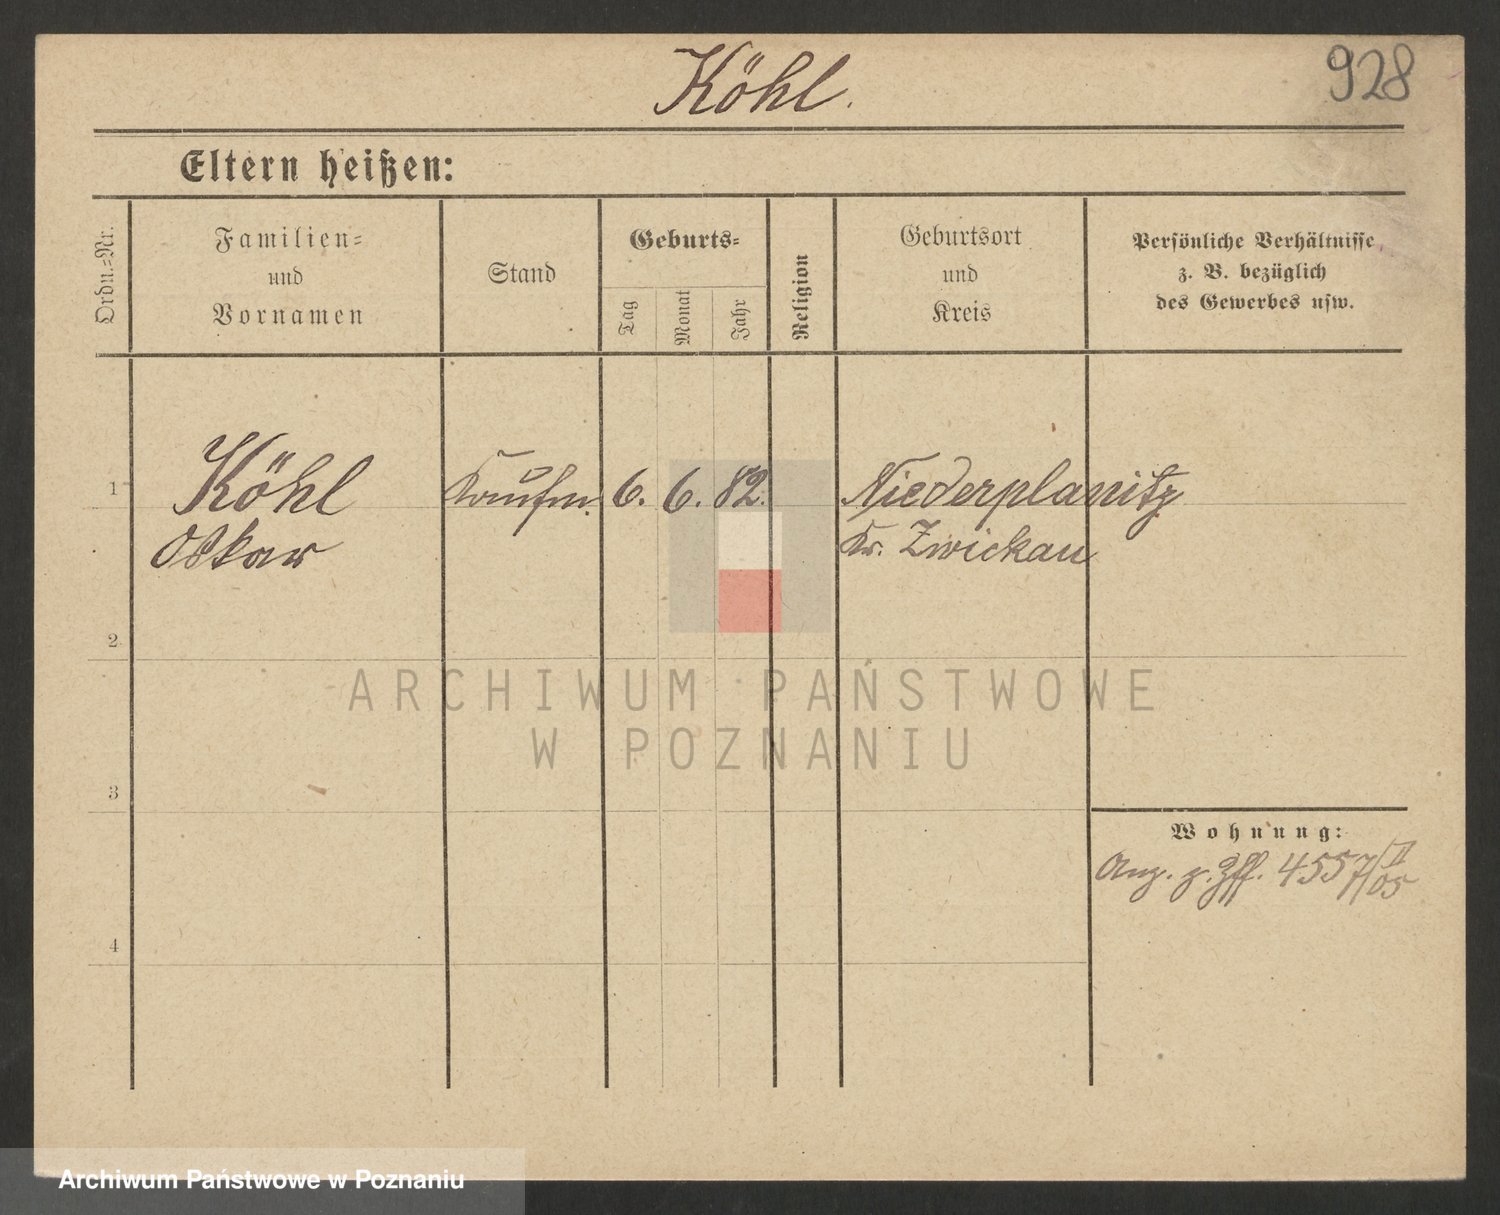 Köhl.
928
Eltern heißen:
Ordn.-Nr.
Familien-
und
Vornamen
Stand
Geburts-
Tag
Monat
Jahr
Religion
Geburtsort
und
Kreis
Persönliche Verhältnisse
z. B. bezüglich
des Gewerbes usw.
1
Köhl
Oskar
Kaufm.
6.
6.
82.
Niederplanitz
Kr. Zwickau
2
3
4
Wohnung:
Anz. z. Zff. 4557/II 05
ARCHIWUM PAŃSTWOWE
W POZNANIU
Archiwum Państwowe w Poznaniu